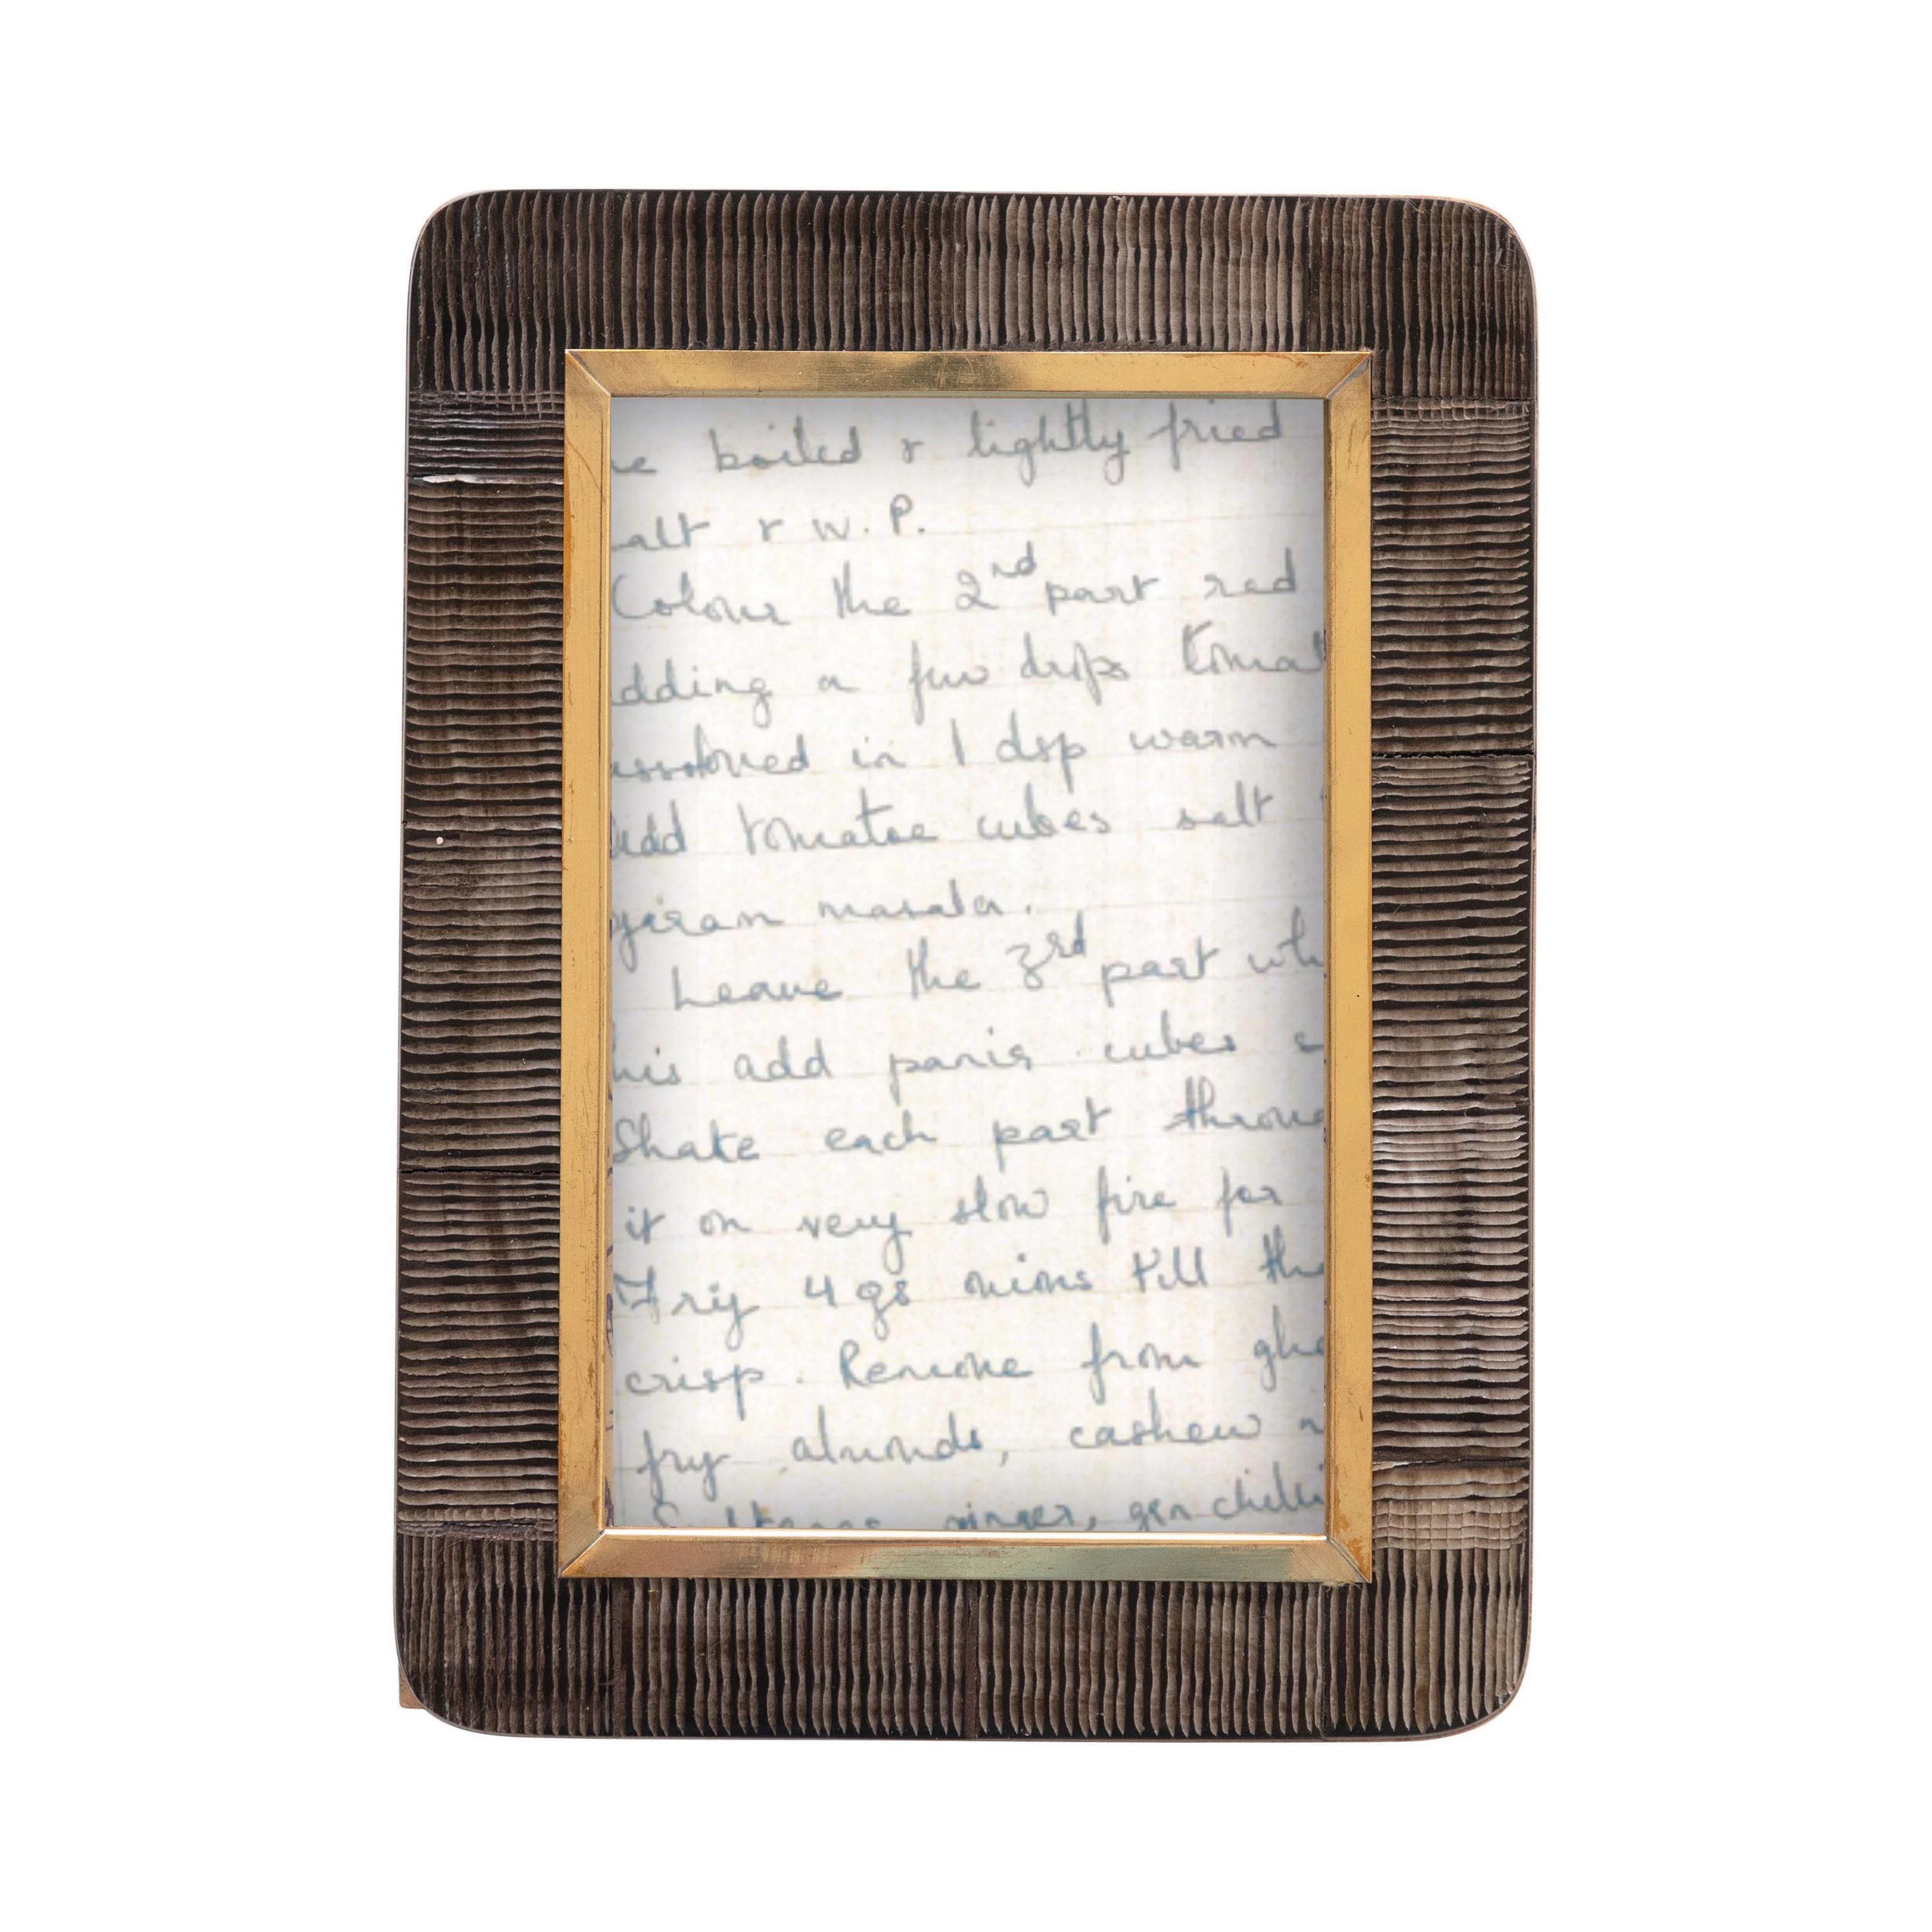 boiled & lightly fried
alt & W.P.
Colour the 2nd part red
dding a few drops tomat
issolved in 1 dsp warm
Add tomatoe cubes salt
giram masala.
Leave the 3rd part wh
his add panir cubes s
Shake each part throug
it on very slow fire for
Fry 4 gs onions till the
crisp. Remove from ghe
fry almonds, cashew n
Sultanas ginger, grn chilli